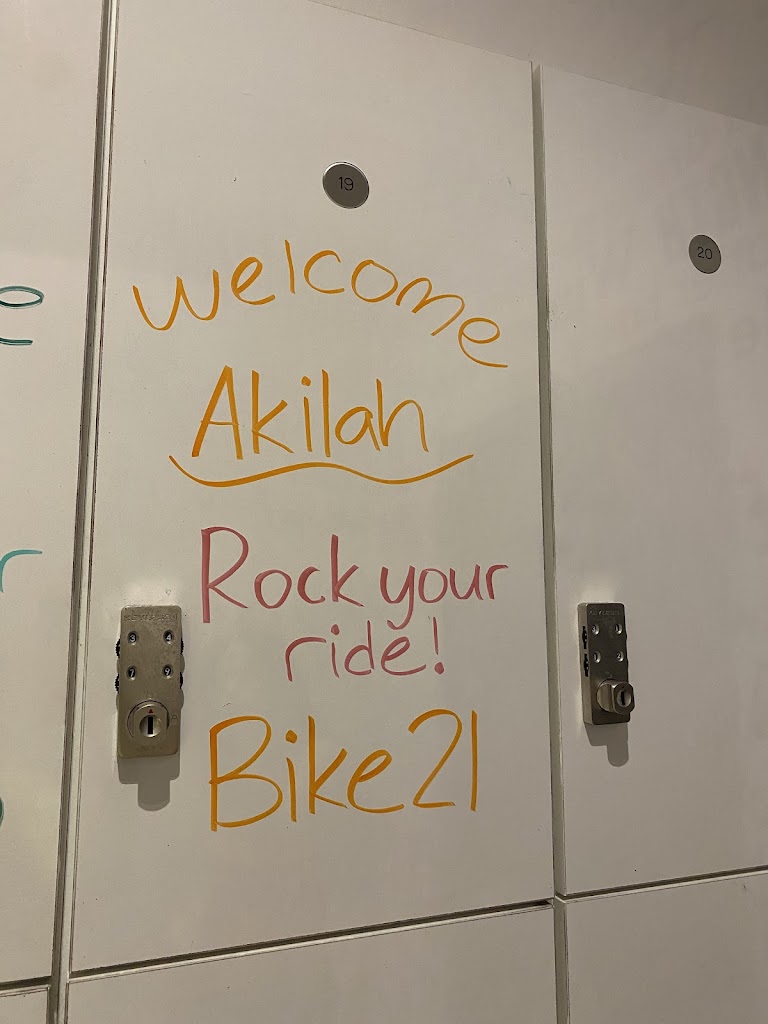 19
20
welcome
Akilah
Rock your
ride!
Bike 21